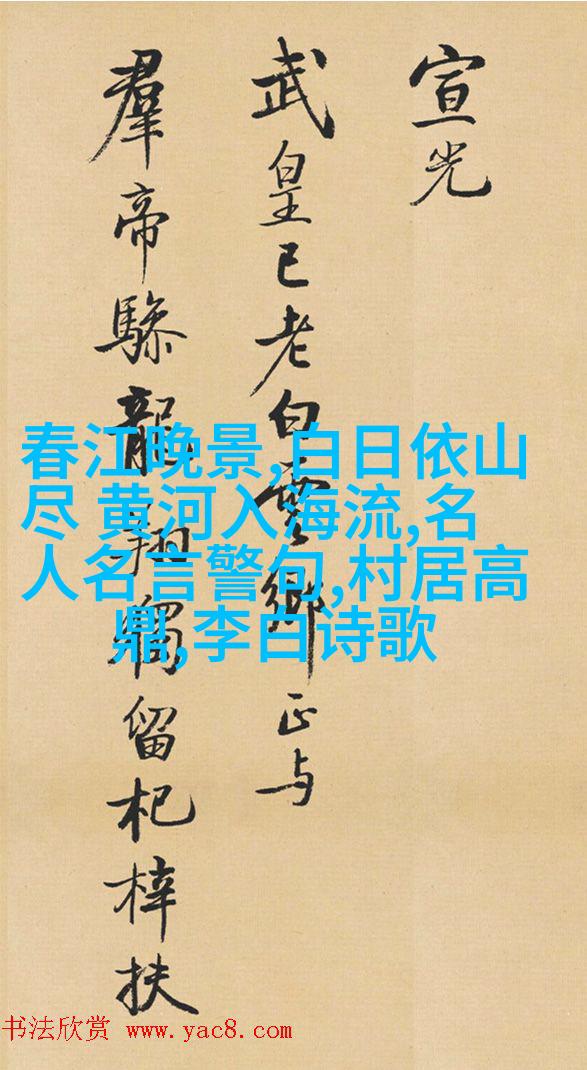 宣光
武皇已老白雲鄉正与
羣帝驂龍翔獨留杞梓扶
春江晚景,白日依山
尽 黄河入海流,名
人名言警句,村居高
鼎,李白诗歌
书法欣赏 www.yac8.com